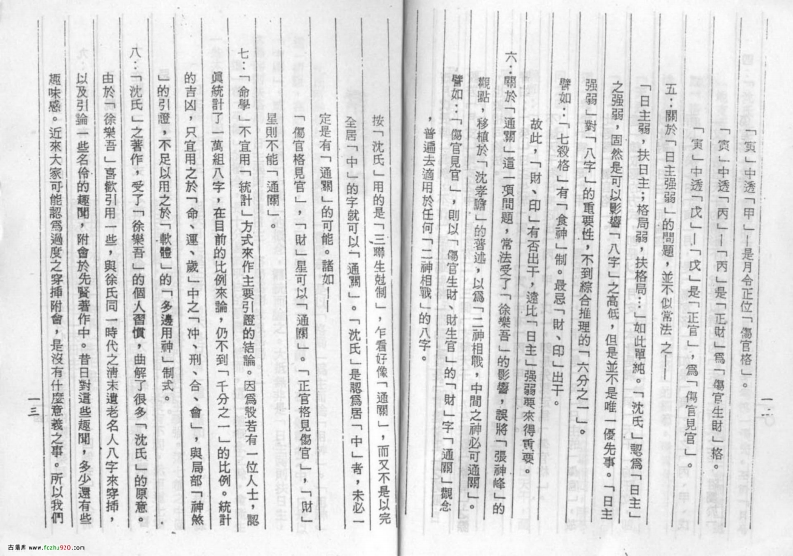 「寅」中透「甲」—是月令正位「傷官格」。
「寅」中透「丙」—「丙」是「正財」爲「傷官生財」格。
「寅」中透「戊」—「戊」是「正官」，爲「傷官見官」。
五：關於「日主强弱」的問題，並不似常法 之——
「日主弱，扶日主；格局弱，扶格局…」如此單純。「沈氏」認爲「日主」
之强弱，固然是可以影響「八字」之高低，但是並不是唯一優先事。「日主
强弱」對「八字」的重要性，不到綜合推理的「六分之一」。
譬如：「七殺格」有「食神」制。最忌「財、印」出干。
故此，「財、印」有否出干，遠比「日主」强弱要來得重要。
六：關於「通關」這一項問題，常法受了「徐樂吾」的影響，誤將「張神峰」的
觀點，移植於「沈孝瞻」的著述，以爲「二神相戰，中間之神必可通關」。
譬如：「傷官見官」，則以「傷官生財、財生官」的「財」字「通關」觀念
，普遍去適用於任何「二神相戰」的八字。
一二
按「沈氏」用的是「三聯生尅制」，乍看好像「通關」，而又不是以完
全居「中」的字就可以「通關」。「沈氏」是認爲居「中」者，未必一
定是有「通關」的可能。諸如——
「傷官格見官」，「財」星可以「通關」。「正官格見傷官」，「財」
星則不能「通關」。
七：「命學」不宜用「統計」方式來作主要引證的結論。因爲設若有一位人士，認
眞統計了一萬組八字，在目前的比例來論，仍不到「千分之一」的比例。統計
的吉凶，只宜用之於「命、運、歲」中之「冲、刑、合、會」，與局部「神煞
」的引證，不足以用之於「軟體」的「多邊用神」制式。
八：「沈氏」之著作，受了「徐樂吾」的個人習慣，曲解了很多「沈氏」的原意。
由於「徐樂吾」喜歡引用一些，與徐氏同一時代之淸末遺老名人八字來穿揷，
以及引論一些名伶的趣聞，附會於先賢著作中。昔日對這些趣聞，多少還有些
趣味感。近來大家可能認爲過度之穿揷附會，是沒有什麽意義之事。所以我們
一三
www.fczhu920.com